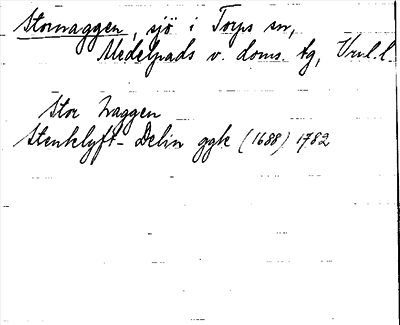 Stornaggen, sjö i Torps sn,
Medelpads v. doms. tg, Vnl. l.
Stor Naggen
Stenklyft-Delin ggk (1688) 1782